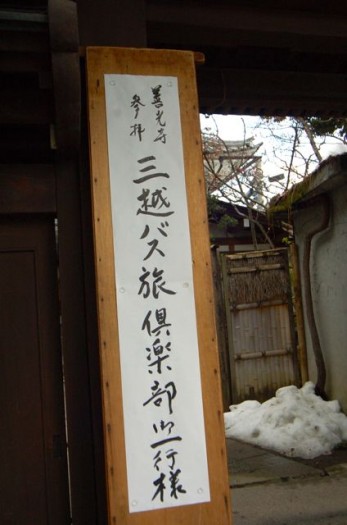 善光寺
参拝
三越バス旅倶楽部御一行様